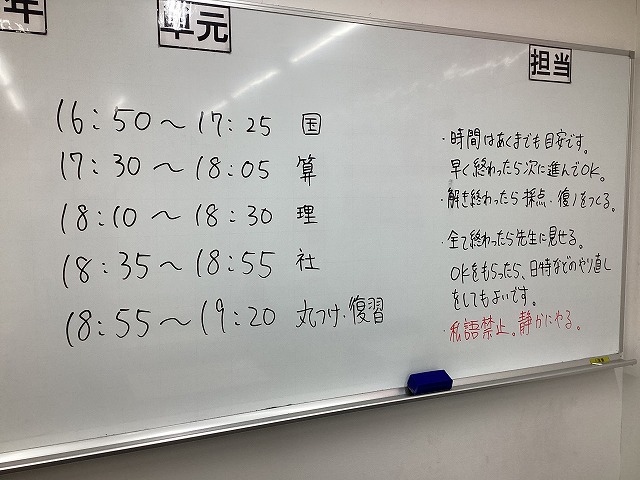 年
単元
担当
16:50〜17:25 国
17:30〜18:05 算
18:10〜18:30 理
18:35〜18:55 社
18:55〜19:20 丸つけ・復習
・時間はあくまでも目安です。
早く終わったら次に進んでOK。
・解き終わったら採点・復ノをつくる。
・全て終わったら先生に見せる。
OKをもらったら、日特などのやり直し
をしてもよいです。
・私語禁止。静かにやる。